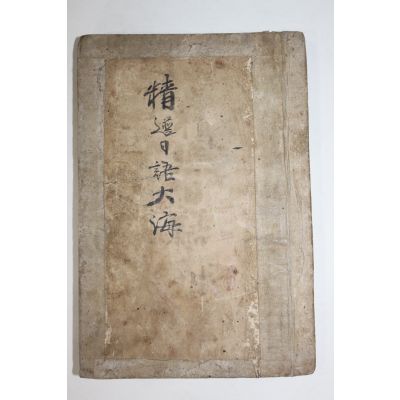 精選日語大海